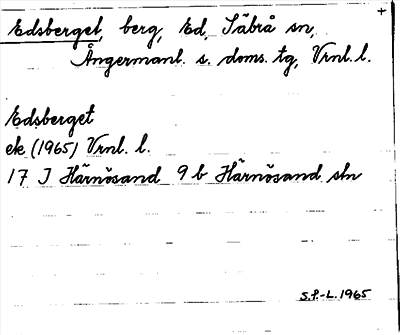 +
Edsberget, berg, Ed, Säbrå sn,
Ångermanl. s. doms. tg, Vrnl. l.
Edsberget
ek (1965) Vrnl. l.
17 J Härnösand 9 b Härnösand stn
S.P.-L. 1965